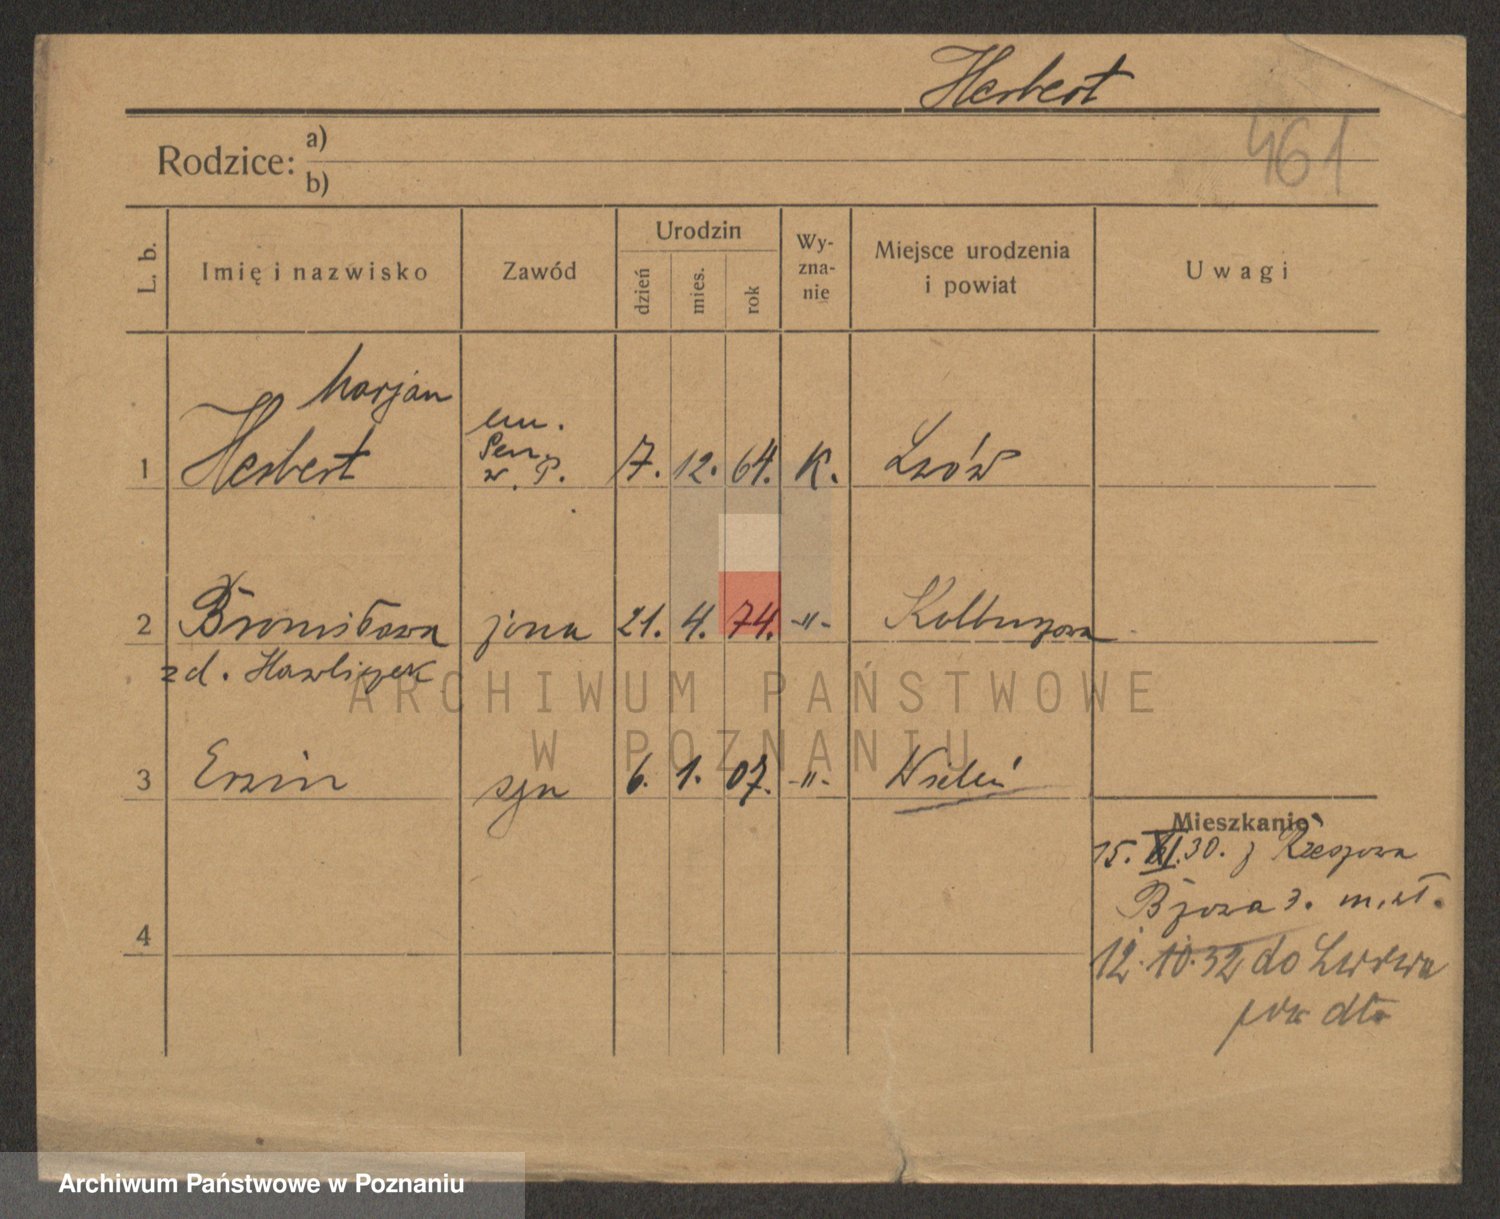 Herbert
461
Rodzice: a)
b)
L. b.
Imię i nazwisko
Zawód
Urodzin
dzień
mies.
rok
Wy-
zna-
nie
Miejsce urodzenia
i powiat
Uwagi
Marjan
1 Herbert em. 7. 12. 64. K. Lwów
w. P.
2 Bronisława żona 21. 4. 74. -"- Kolbuszowa
zd. Hawliczek
3 Erwin syn 6. 1. 07. -"- Wiedeń
4
Mieszkanie
15. XI. 30. z Rzeszowa
3. m.
12. 10. 32 do Lwowa
ARCHIWUM PAŃSTWOWE
W POZNANIU
Archiwum Państwowe w Poznaniu